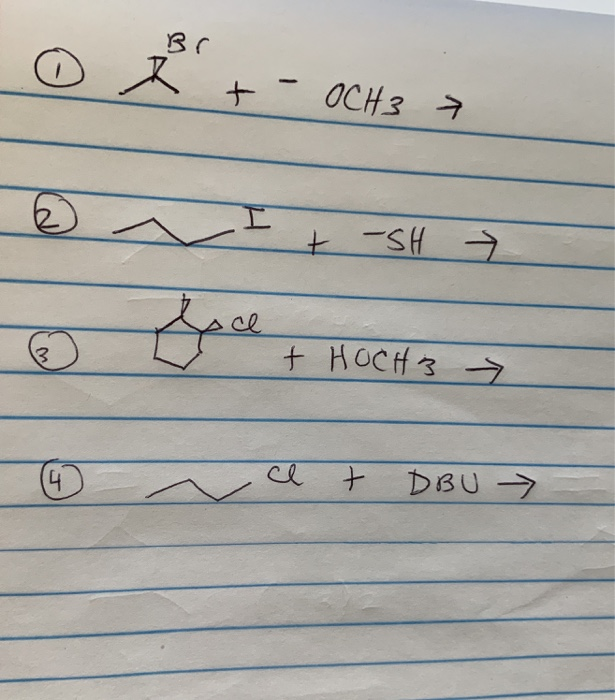 ① Br + - OCH3 →
② I + -SH →
③ Cl + HOCH3 →
④ Cl + DBU →